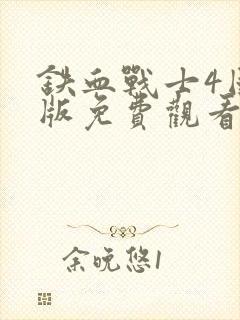 鉄血戰士4
版免費觀看
余晚悠1